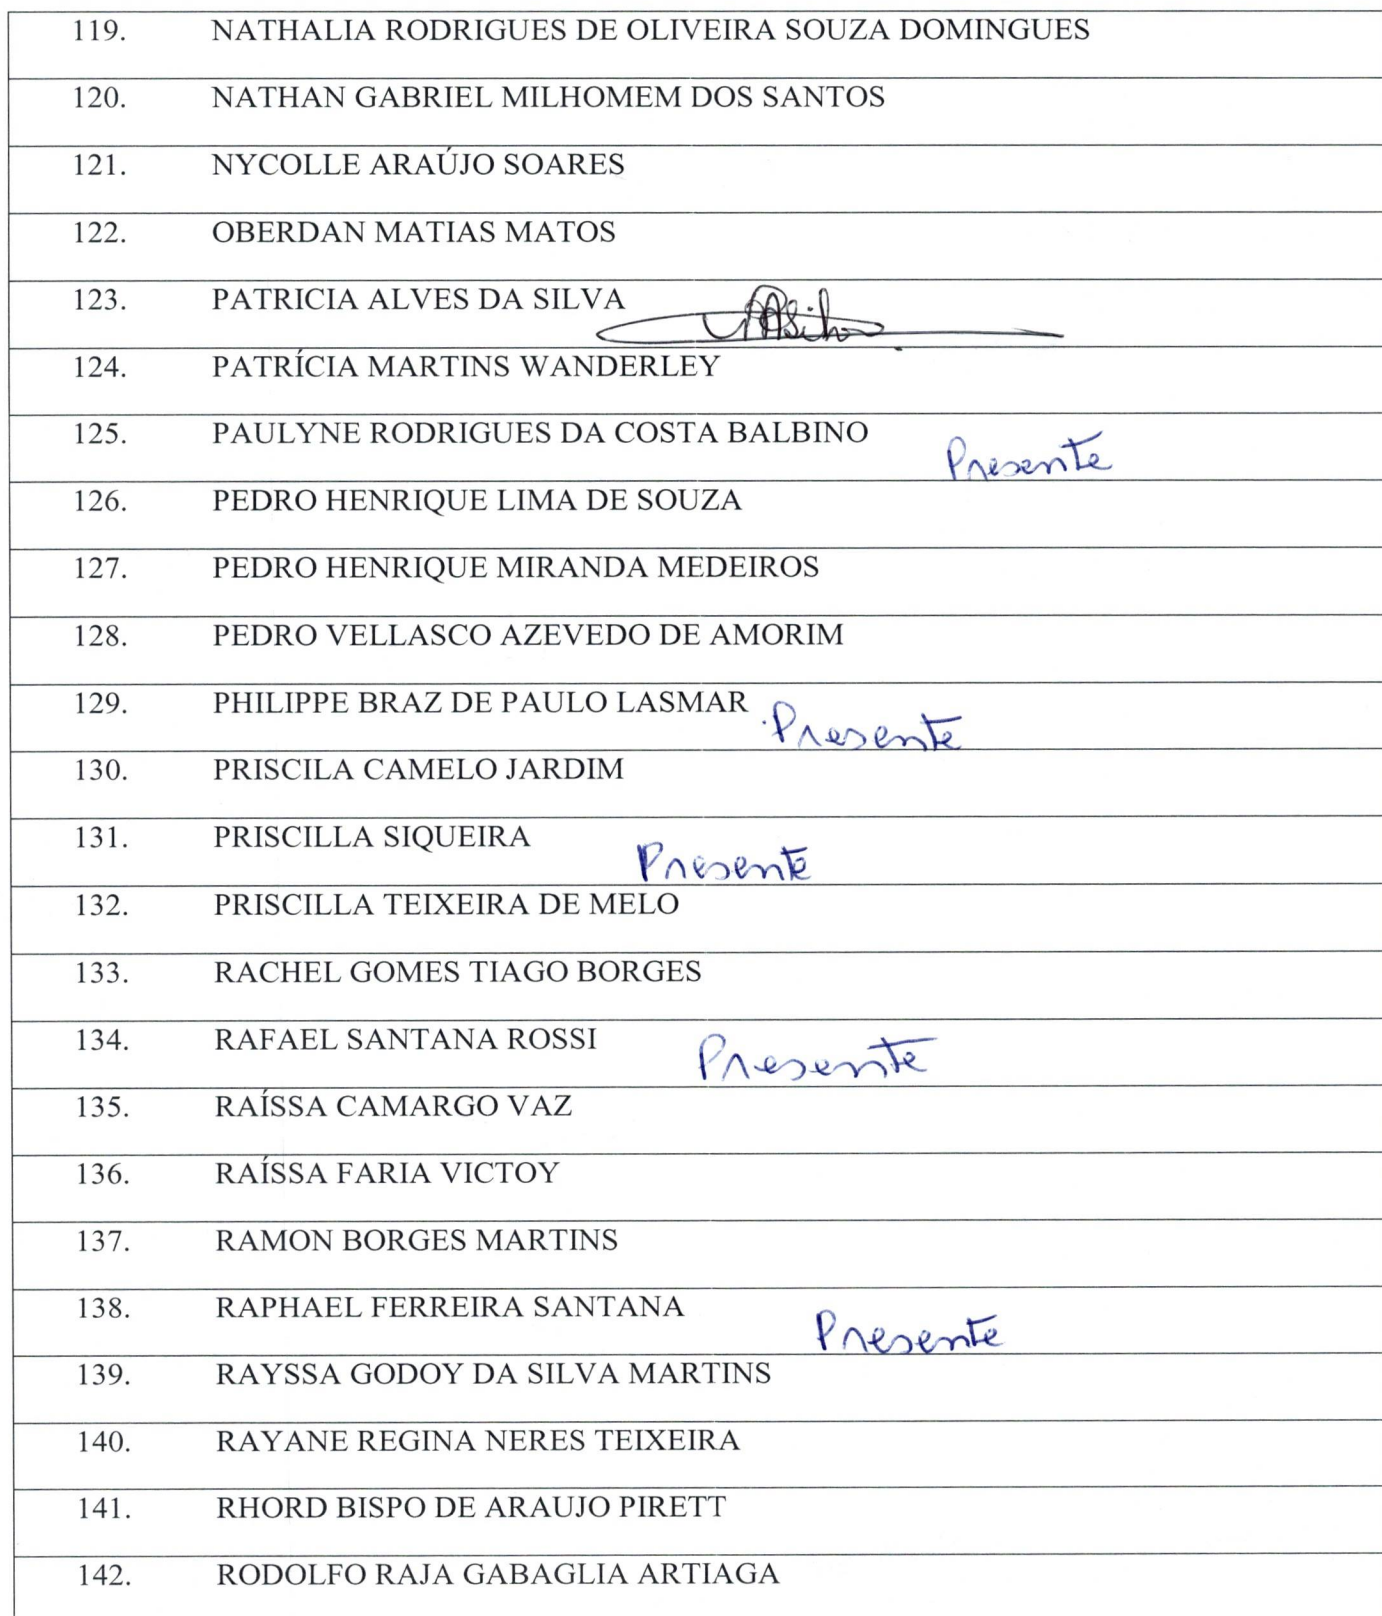 119. NATHALIA RODRIGUES DE OLIVEIRA SOUZA DOMINGUES
120. NATHAN GABRIEL MILHOMEM DOS SANTOS
121. NYCOLLE ARAÚJO SOARES
122. OBERDAN MATIAS MATOS
123. PATRICIA ALVES DA SILVA
124. PATRÍCIA MARTINS WANDERLEY
125. PAULYNE RODRIGUES DA COSTA BALBINO Presente
126. PEDRO HENRIQUE LIMA DE SOUZA
127. PEDRO HENRIQUE MIRANDA MEDEIROS
128. PEDRO VELLASCO AZEVEDO DE AMORIM
129. PHILIPPE BRAZ DE PAULO LASMAR Presente
130. PRISCILA CAMELO JARDIM
131. PRISCILLA SIQUEIRA Presente
132. PRISCILLA TEIXEIRA DE MELO
133. RACHEL GOMES TIAGO BORGES
134. RAFAEL SANTANA ROSSI Presente
135. RAÍSSA CAMARGO VAZ
136. RAÍSSA FARIA VICTOY
137. RAMON BORGES MARTINS
138. RAPHAEL FERREIRA SANTANA Presente
139. RAYSSA GODOY DA SILVA MARTINS
140. RAYANE REGINA NERES TEIXEIRA
141. RHORD BISPO DE ARAUJO PIRETT
142. RODOLFO RAJA GABAGLIA ARTIAGA